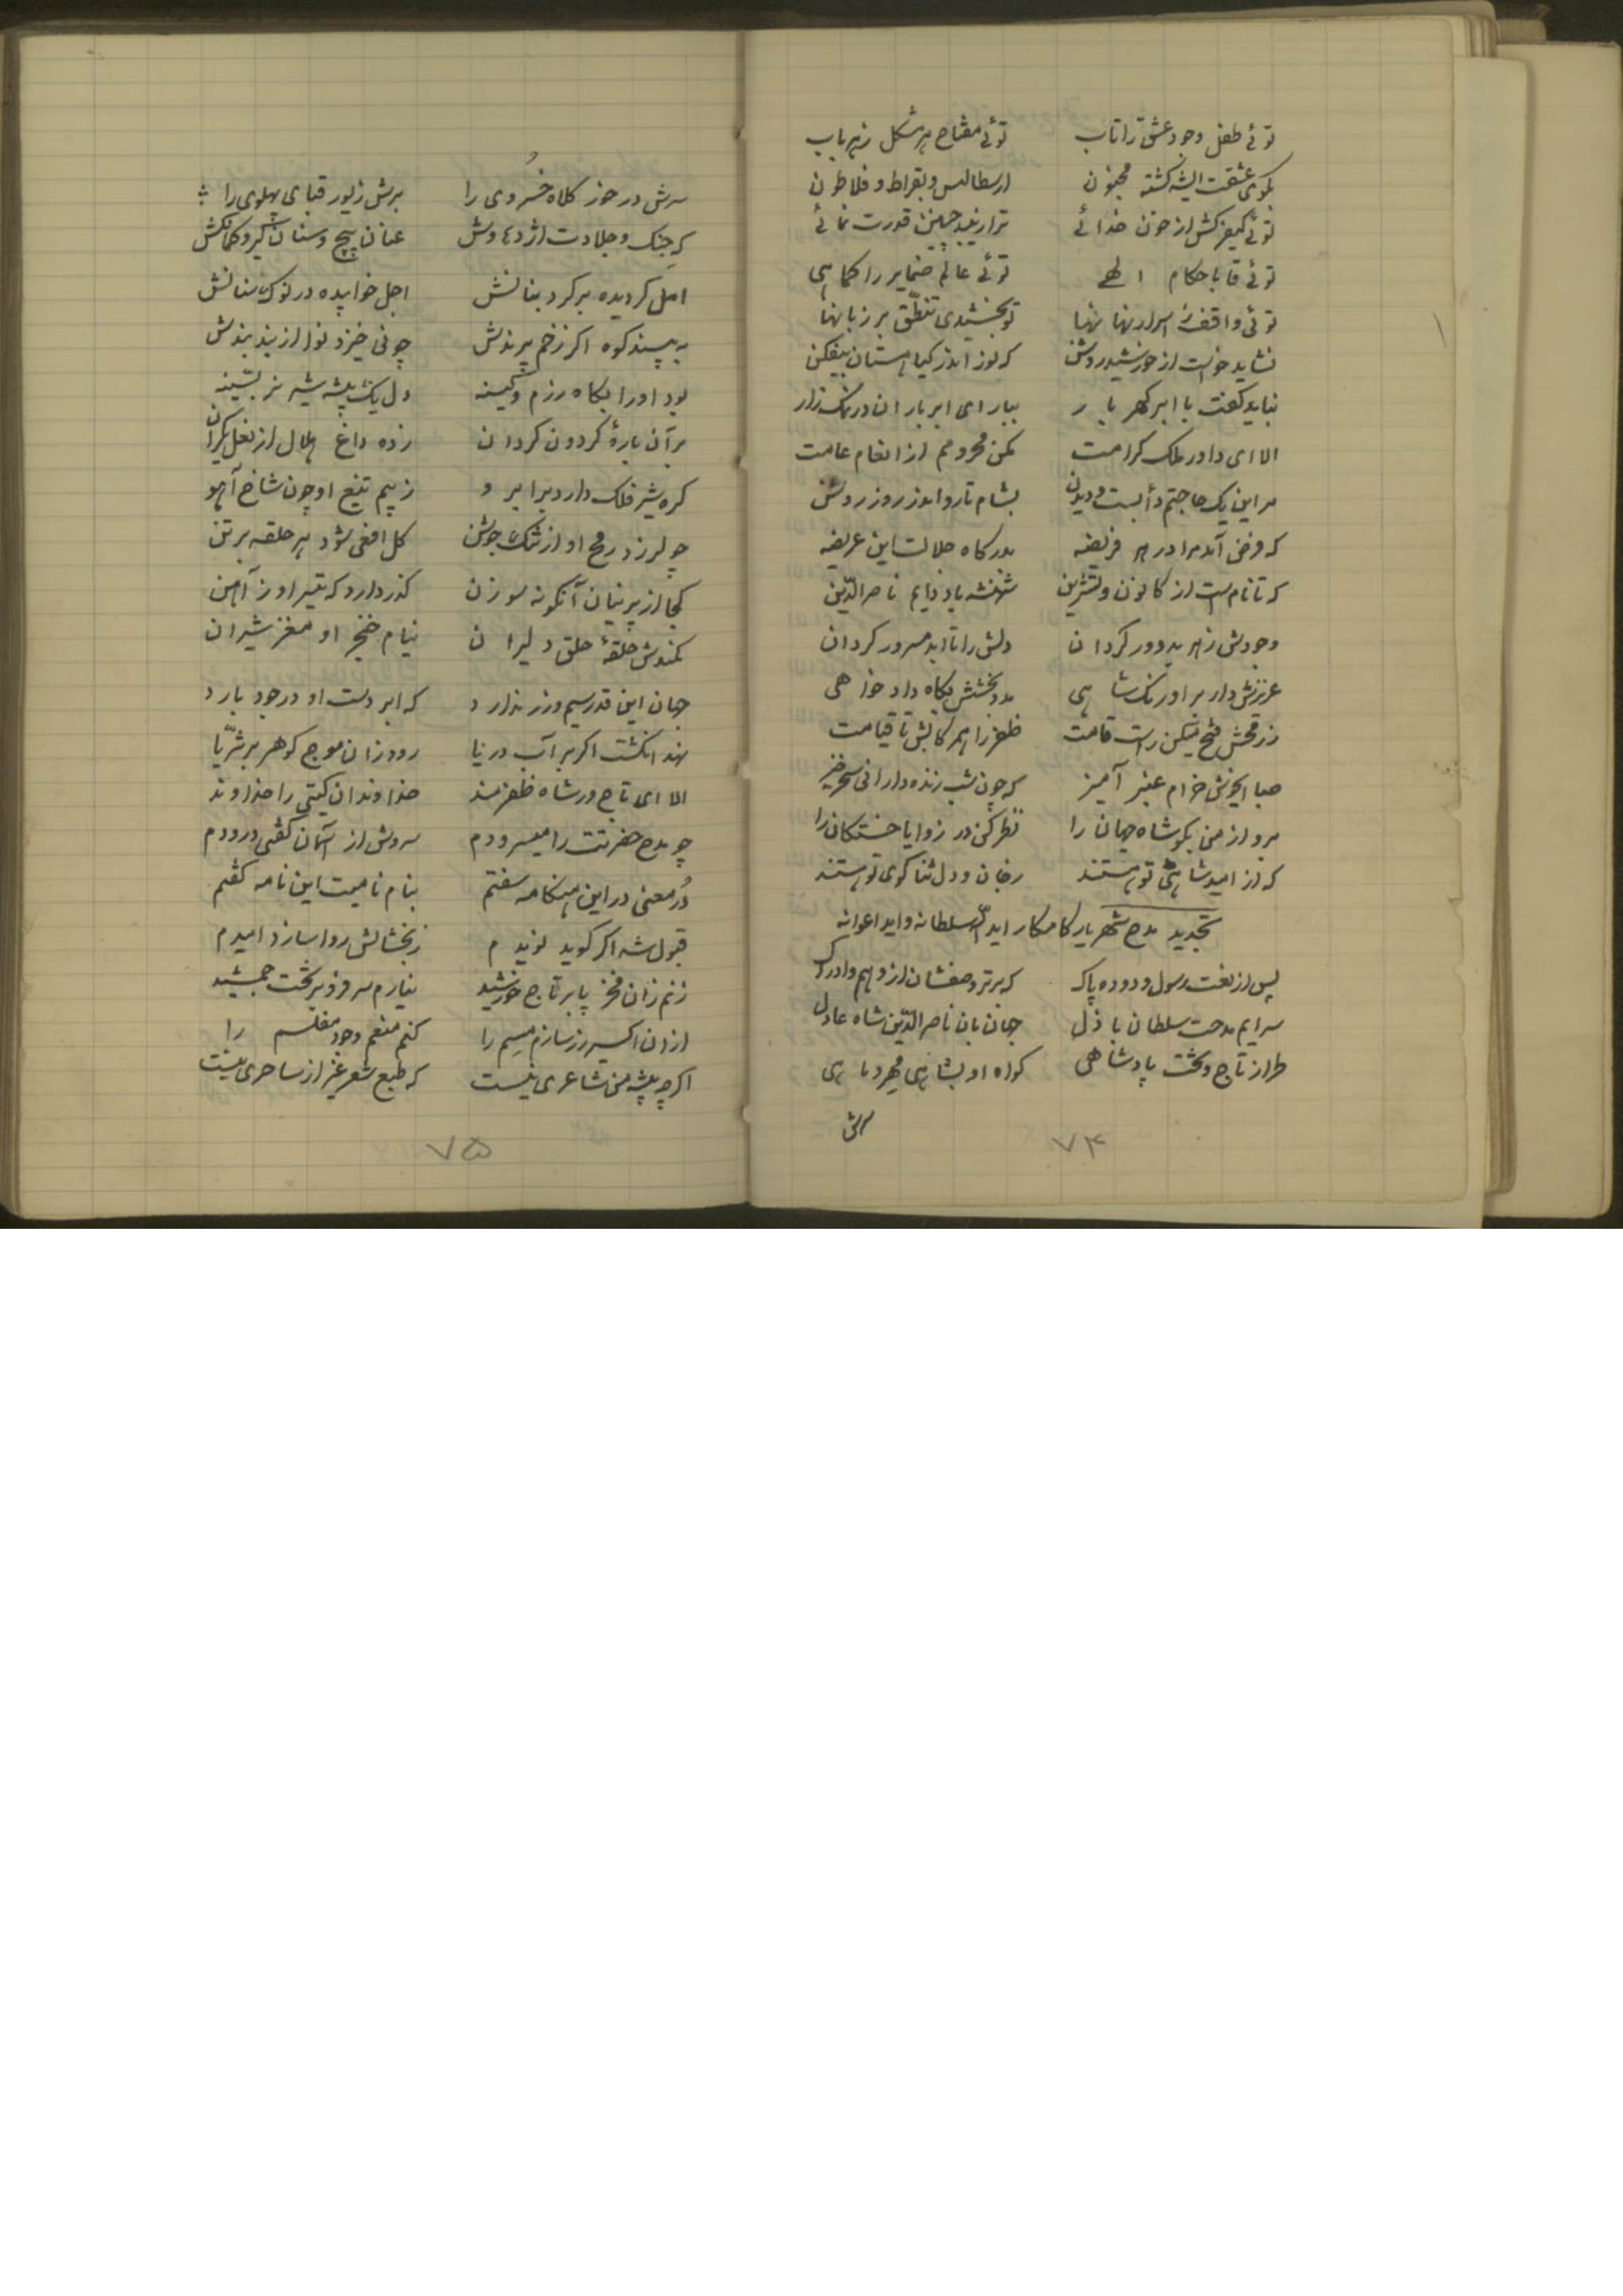 توئے طفل وجود عشق را تاب توئے مفتاح هر مشکل ز هر باب
بکوی عشقت گشته مجنون ارسطالیس و بقراط و فلاطون
توئے کیفر کش از خون خدائے ترا زیبد چنین قدرت نمائے
توئے باحکام الهے توئے عالم ضمایر را کماهی
توئی واقف ز اسرار نهانها تو بخشیدی تنطّق بر زبانها
نشاید خواست از خورشید روشن که نور اندر کیاهستان بیفکن
نباید کفت با ابر کهر بار ببار ای ابر باران در نمک زار
الا ای داور ملک کرامت مکن محرومم از انعام عامت
مر این یک حاجتم بشام تار و اندر روز روشن
که فرض آمد مرا در هر فریضه بدرکاه جلالت این عریضه
که تا نام است از کانون و تشرین شهنشه باد دایم ناصرالدّین
وجودش ز هر بد دور کردان دلش را تا ابد مسرور کردان
عزیزش دار بر اورنک شاهی مدد بخشش بکاه داد خواهی
ز رمحش فتح میکن راست قامت ظفر را همرکابش تا قیامت
صبا ایخوش خرام عنبر آمیز که چون شب زنده دارانی سحر خیز
برو از من بکو شاه جهان را نظر کن در زوایا خستکان را
که از امید شاهی تو هستند ز جان و دل ثنا کوی تو هستند
تجدید مدح شهریار کامکار اید اللّه سلطانه و اید اعوانه
پس از نعت رسول و دوده پاک که برتر وصفشان از وهم و ادراک
سرایم مدحت سلطان باذل جهان بان ناصرالدّین شاه عادل
طراز تاج و تخت پادشاهی کواه او بشاهی مهر و ماهی
سرش
۷۴
سرش در خور کلاه خُسروی را برش زیور قبای پهلوی را
که جنک و جلادت اژدها وش عنان پیچ و سنان کیر و کمانکش
امل کردیده بر کرد بنانش اجل خوابیده در نوک سنانش
به بیند کوه اکر زخم پرندش چو نی خیزد نوا از بند بندش
بود او را بکاه رزم و کینه دل یک بیشه شیر نر بسینه
بر آن بارهٔ کردون کردان زده داغ هلال از نعل یکران
کره شیر فلک دارد برابر و ز بیم تیغ او چون شاخ آهو
چو لرزد رمح او از تنک جوشن کل افعی شود هر حلقه بر تن
کجا از پرنیان آنکونه سوزن کذر دارد که تیر او ز آهن
کمندش حلقهٔ حلق دلیران نیام خنجر او مغز شیران
جهان این قدر سیم و زر ندارد که ابر دست او در جود بارد
نهد انکشت اکر بر آب دریا رود زان موج کوهر بر ثریّا
الا ای تاج ور شاه ظفرمند خداوندان کیتی را خداوند
چو مدح حضرتت را میسرودم سروش از آسمان کفتی درودم
دُر معنی در این هنکامه سفتم بنام نامیت این نامه کفتم
قبول شه اکر کوید نویدم ز بخشایش روا سازد امیدم
زنم زان فخر پا بر تاج خورشید نیارم سر فرو بر تخت جمشید
از ان اکسیر زر سازم مسم را کنم منعم وجود مفلسم را
اکر چه پیشه من شاعری نیست که طبع شعر غیر از ساحری نیست
۷۵